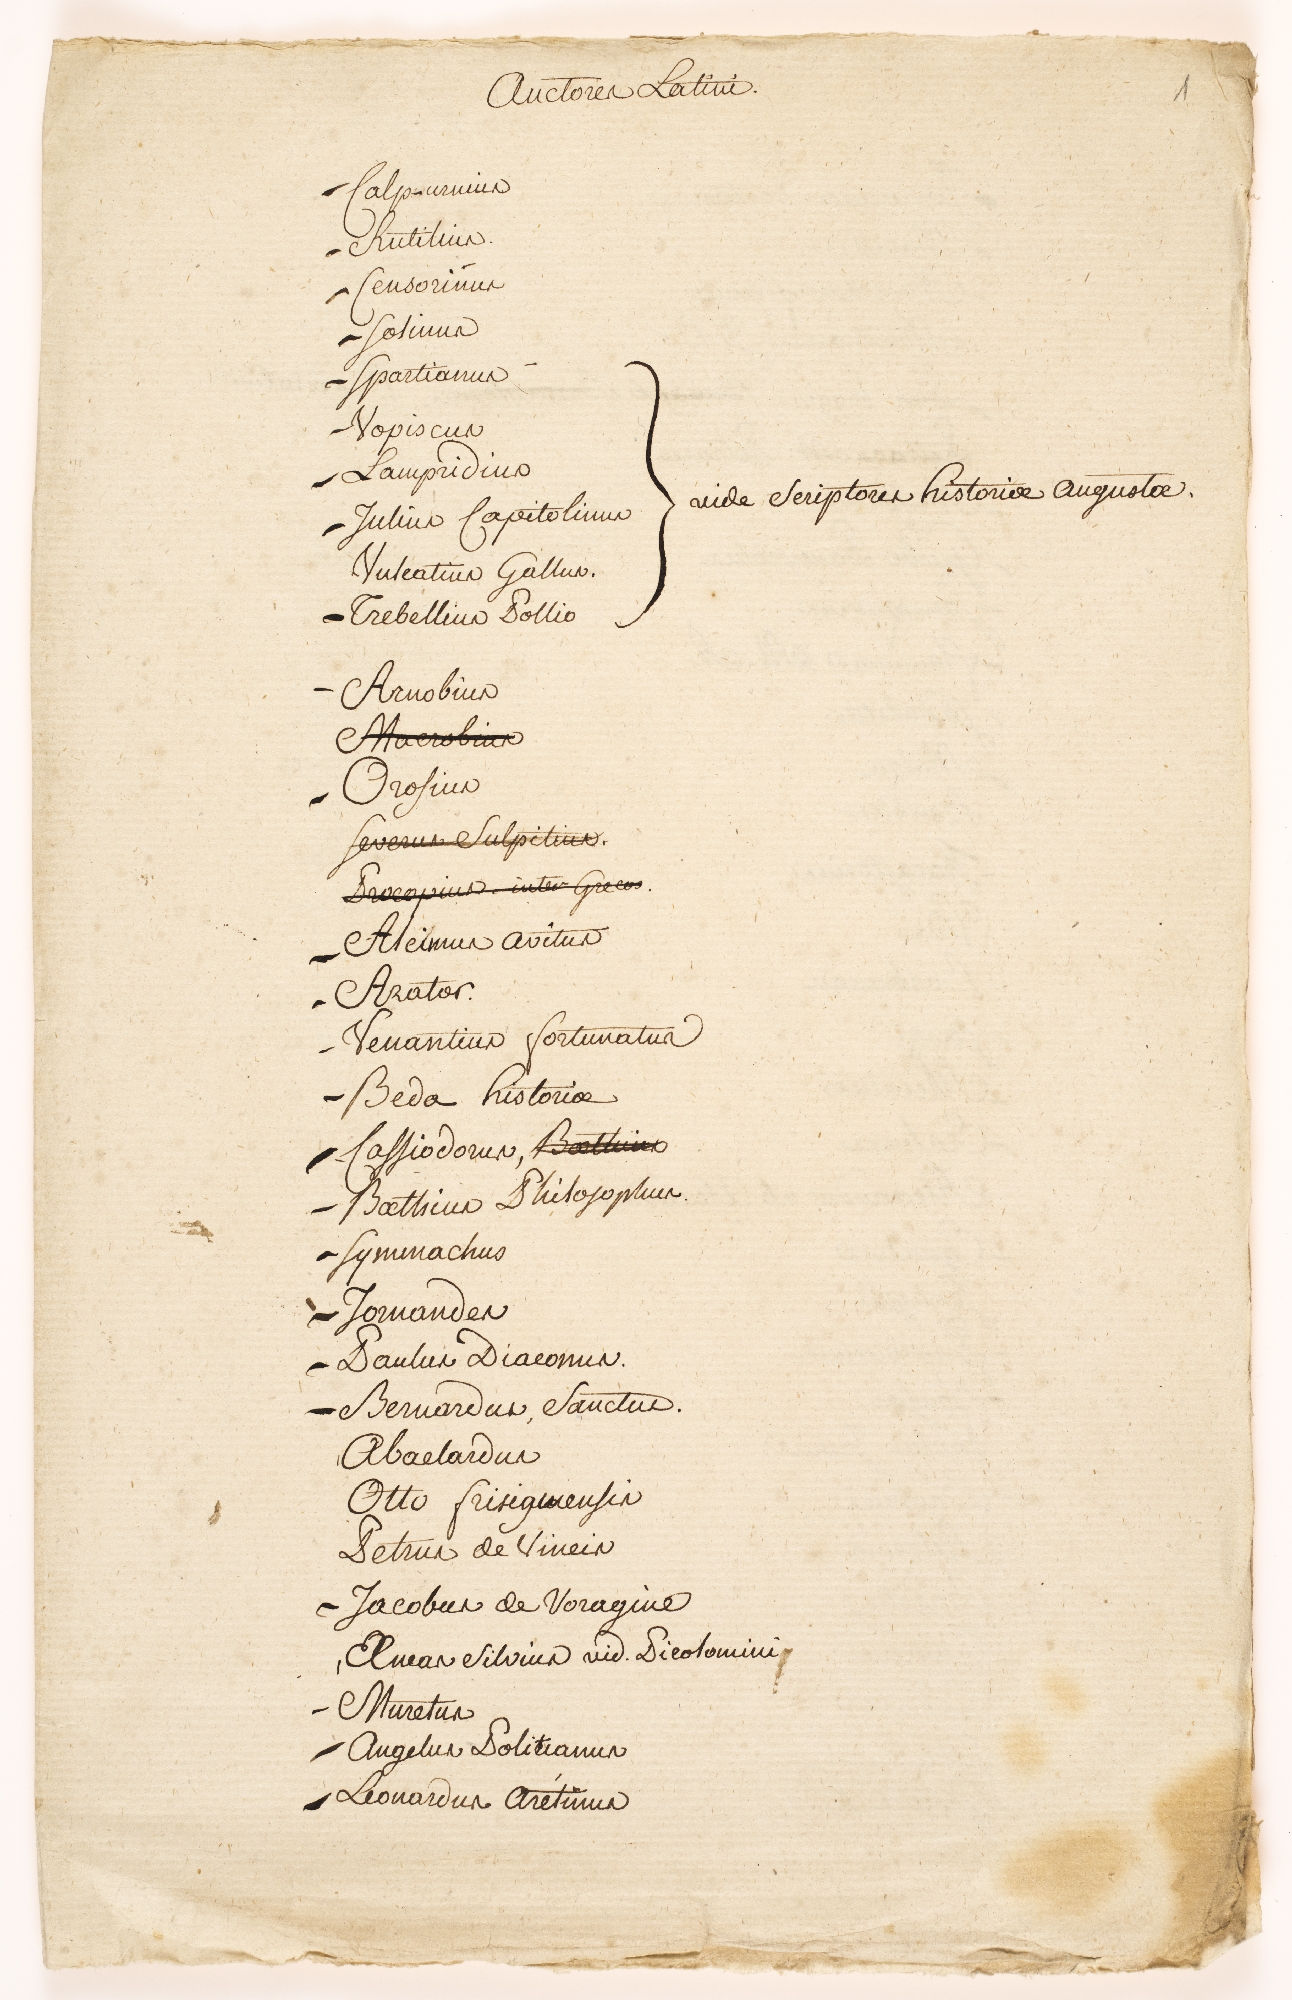 Auctores Latini.
1
- Calpurnius
- Rutilius.
- Censorinus
- Solinus
- Spartianus -
- Vopiscus
- Lampridius
- Julius Capitolinus
vide Scriptores historiæ Augustæ.
Vulcatius Gallus.
- Trebellius Pollio
- Arnobius
Macrobius
- Orosius
Severus Sulpitius.
Procopius. inter Grecos.
- Alcimus avitus
- Arator.
- Venantius fortunatus
- Beda historiæ
- Cassiodorus, Boethius
- Boethius Philosophus.
- Symmachus
- Jornandes
- Paulus Diaconus.
- Bernardus, Sanctus.
Abaelardus
Otto frisiguensis
Petrus de Vineis
- Jacobus de Voragine
Æneas Silvius vid. Picolomini
- Muretus
- Angelus Politianus
- Leonardus Arétinus